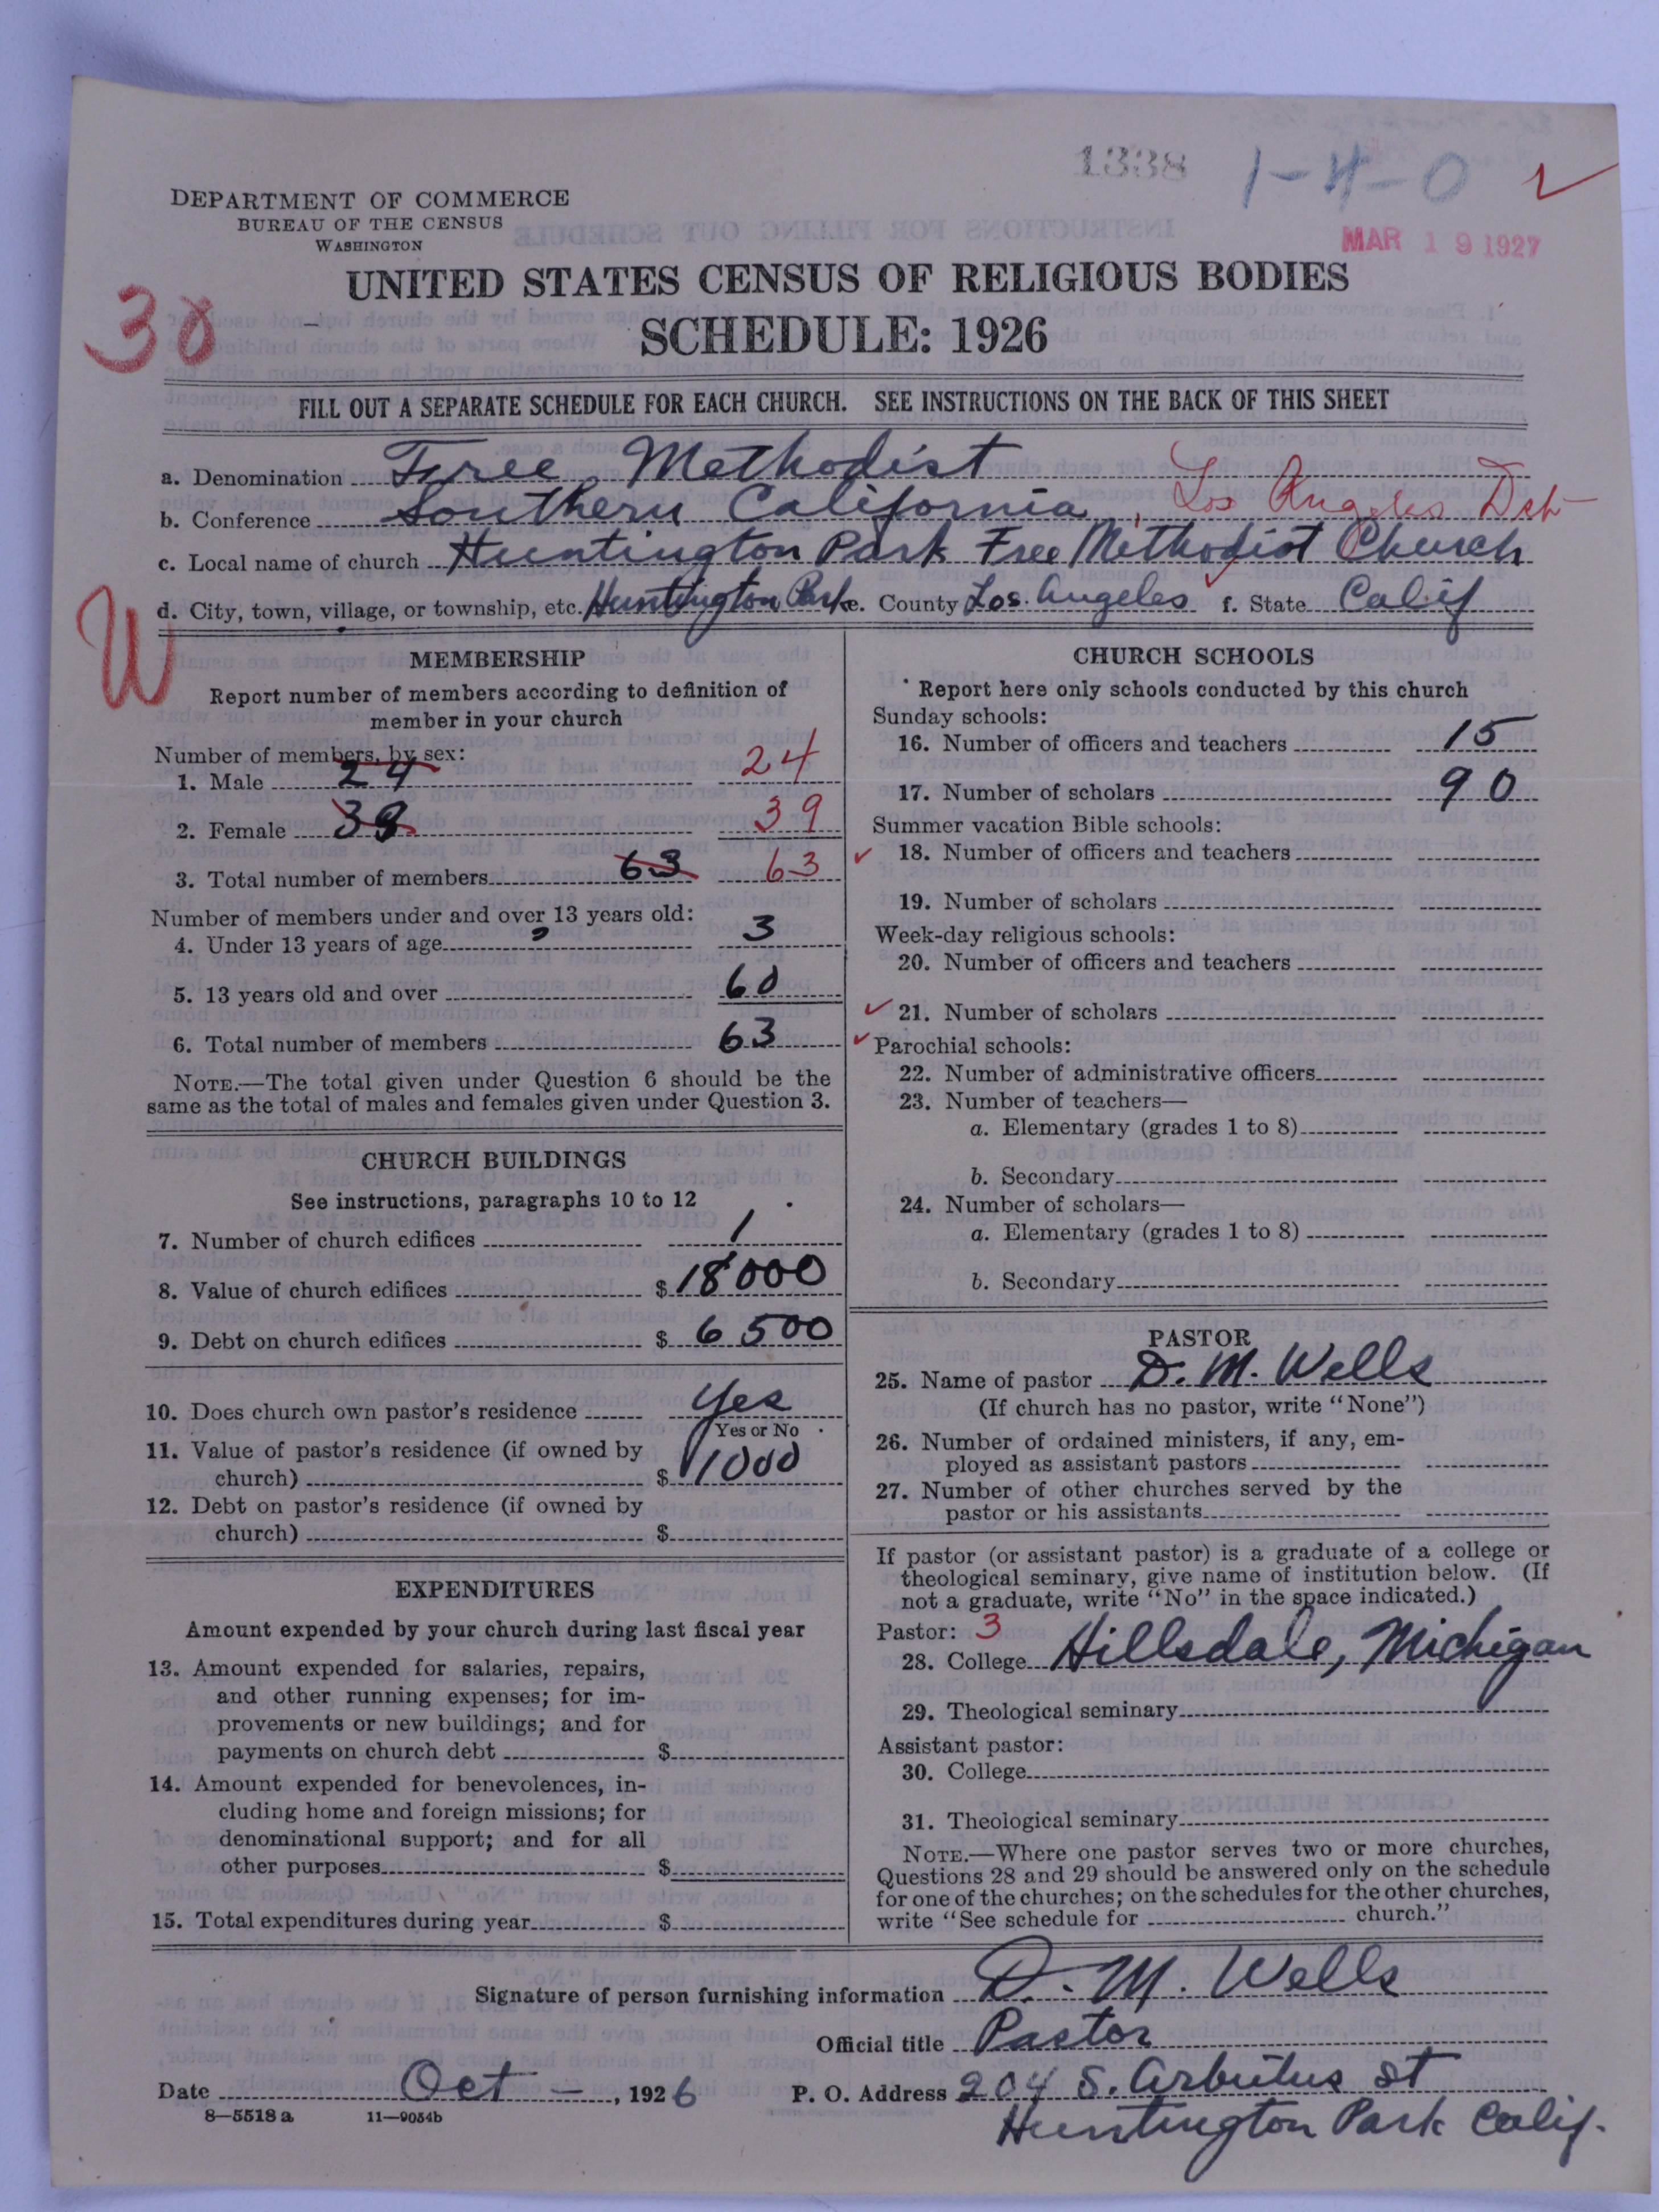 1338 1-4-0
DEPARTMENT OF COMMERCE
BUREAU OF THE CENSUS
WASHINGTON
MAR 19 1927
UNITED STATES CENSUS OF RELIGIOUS BODIES
SCHEDULE: 1926
30
FILL OUT A SEPARATE SCHEDULE FOR EACH CHURCH. SEE INSTRUCTIONS ON THE BACK OF THIS SHEET
a. Denomination Free Methodist
b. Conference Southern California, Los Angeles Dst
c. Local name of church Huntington Park Free Methodist Church
d. City, town, village, or township, etc. Huntington Park e. County Los Angeles f. State Calif
W
MEMBERSHIP
Report number of members according to definition of
member in your church
Number of members, by sex:
1. Male 24 24
2. Female 39 39
3. Total number of members 63 63
Number of members under and over 13 years old:
4. Under 13 years of age 3
5. 13 years old and over 60
6. Total number of members 63
NOTE.—The total given under Question 6 should be the
same as the total of males and females given under Question 3.
CHURCH BUILDINGS
See instructions, paragraphs 10 to 12
7. Number of church edifices 1
8. Value of church edifices $ 18000
9. Debt on church edifices $ 6500
10. Does church own pastor's residence Yes
Yes or No
11. Value of pastor's residence (if owned by
church) $ 1000
12. Debt on pastor's residence (if owned by
church) $
EXPENDITURES
Amount expended by your church during last fiscal year
13. Amount expended for salaries, repairs,
and other running expenses; for im-
provements or new buildings; and for
payments on church debt $
14. Amount expended for benevolences, in-
cluding home and foreign missions; for
denominational support; and for all
other purposes $
15. Total expenditures during year $
CHURCH SCHOOLS
Report here only schools conducted by this church
Sunday schools:
16. Number of officers and teachers 15
17. Number of scholars 90
Summer vacation Bible schools:
18. Number of officers and teachers
19. Number of scholars
Week-day religious schools:
20. Number of officers and teachers
21. Number of scholars
Parochial schools:
22. Number of administrative officers
23. Number of teachers—
a. Elementary (grades 1 to 8)
b. Secondary
24. Number of scholars—
a. Elementary (grades 1 to 8)
b. Secondary
PASTOR
25. Name of pastor D. M. Wells
(If church has no pastor, write "None")
26. Number of ordained ministers, if any, em-
ployed as assistant pastors
27. Number of other churches served by the
pastor or his assistants
If pastor (or assistant pastor) is a graduate of a college or
theological seminary, give name of institution below. (If
not a graduate, write "No" in the space indicated.)
Pastor: 3
28. College Hillsdale, Michigan
29. Theological seminary
Assistant pastor:
30. College
31. Theological seminary
NOTE.—Where one pastor serves two or more churches,
Questions 28 and 29 should be answered only on the schedule
for one of the churches; on the schedules for the other churches,
write "See schedule for church."
Signature of person furnishing information D. M. Wells
Official title Pastor
Date Oct —, 1926 P. O. Address 204 S. Arbutus St
8—5518 a 11—9054b Huntington Park Calif.